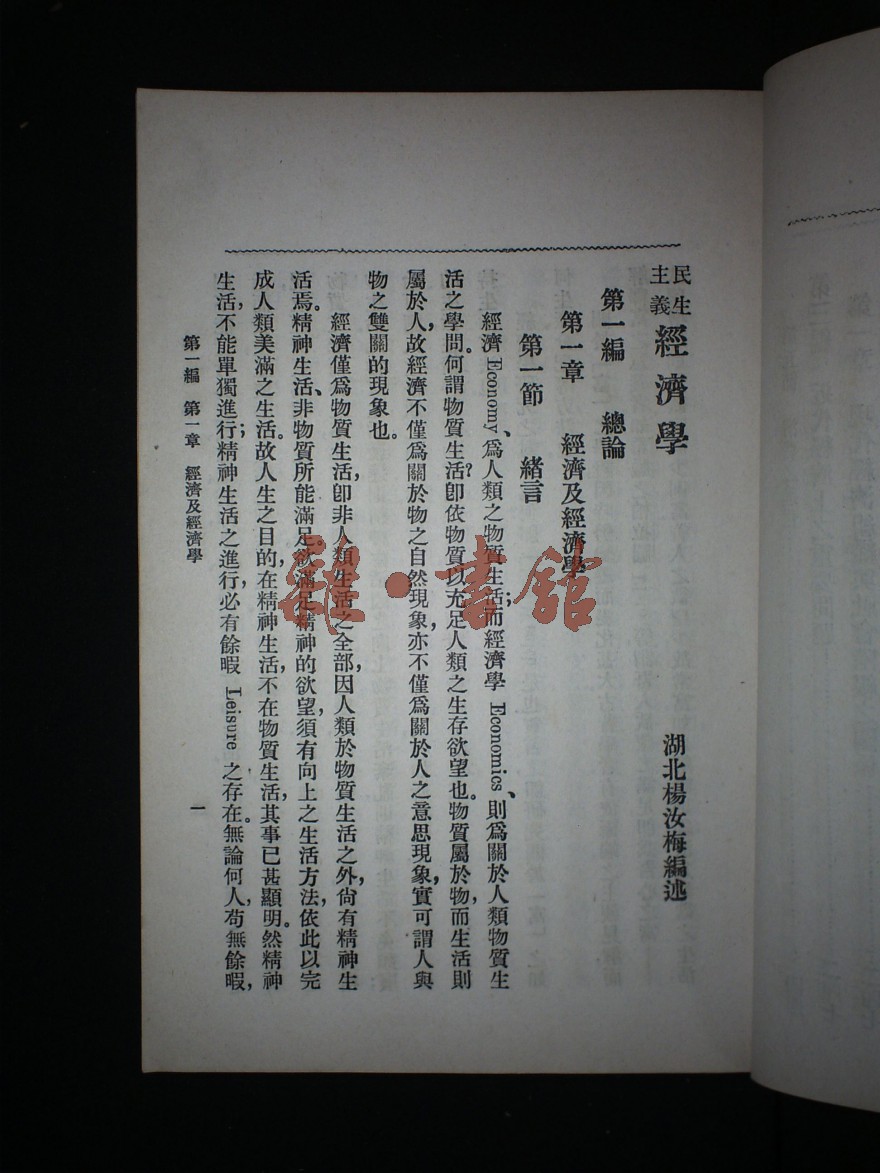 民生主義經濟學
湖北楊汝梅編述
第一編　總論
第一章　經濟及經濟學
第一節　緒言
經濟 Economy、爲人類之物質生活；而經濟學 Economics、則爲關於人類物質生
活之學問。何謂物質生活？卽依物質以充足人類之生存欲望也。物質屬於物，而生活則
屬於人，故經濟不僅爲關於物之自然現象，亦不僅爲關於人之意思現象，實可謂人與
物之雙關的現象也。
經濟僅爲物質生活，卽非人類生活之全部，因人類於物質生活之外，尙有精神生
活焉。精神生活、非物質所能滿足。欲滿足精神的欲望，須有向上之生活方法，依此以完
成人類美滿之生活。故人生之目的，在精神生活，不在物質生活，其事已甚顯明。然精神
生活，不能單獨進行；精神生活之進行，必有餘暇 Leisure 之存在。無論何人，苟無餘暇，
第一編　第一章　經濟及經濟學
一
雜·書館